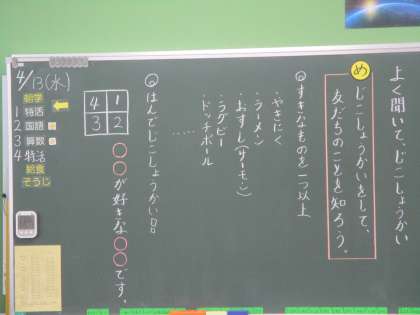 よく聞いて、じこしょうかい
め
じこしょうかいをして、
友だちのことを知ろう。
◎すきなものを一つ以上
・やきにく
・ラーメン
・おすし(サーモン)
・ラグビー
・ドッチボール
……
◎はんでじこしょうかい
○○が好きな○○です。
4 1
3 2
4/13(水)
1 特活
2 国語
3 算数
4 特活
給食
そうじ